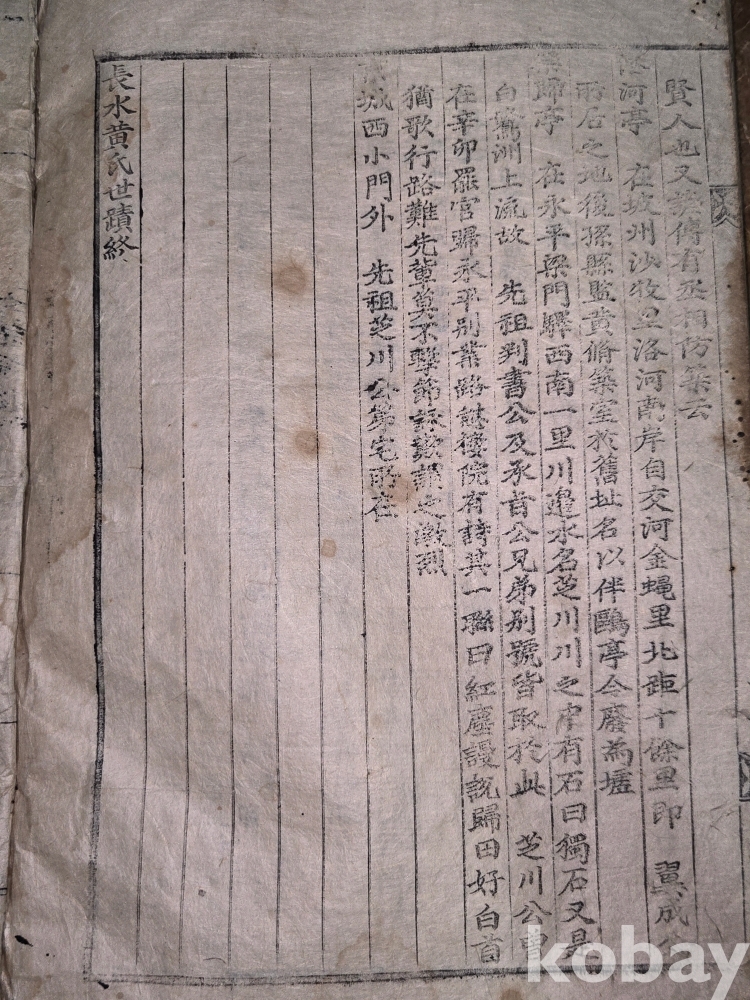 賢人也又 傳有丞相防築云
河亭 在坡州沙牧里洛河南岸自交河金蠅里北距十餘里即 翼成公
所占之地後孫縣監黃脩築室於舊址名以伴鷗亭今廢為墟
歸亭 在永平梁門驛西南一里川邉水名芝川川之岸有石曰獨石又是
白鷺洲上流故 先祖判書公及承旨公兄弟別號皆取於此 芝川公曾
在辛卯罷官歸永平別業路 樓院有詩其一聯曰紅塵謾說歸田好白首
猶歌行路難先軰莫不擊節詠歎 之激烈
城西小門外 先祖芝川公第宅所在
長水黃氏世蹟終
kobay